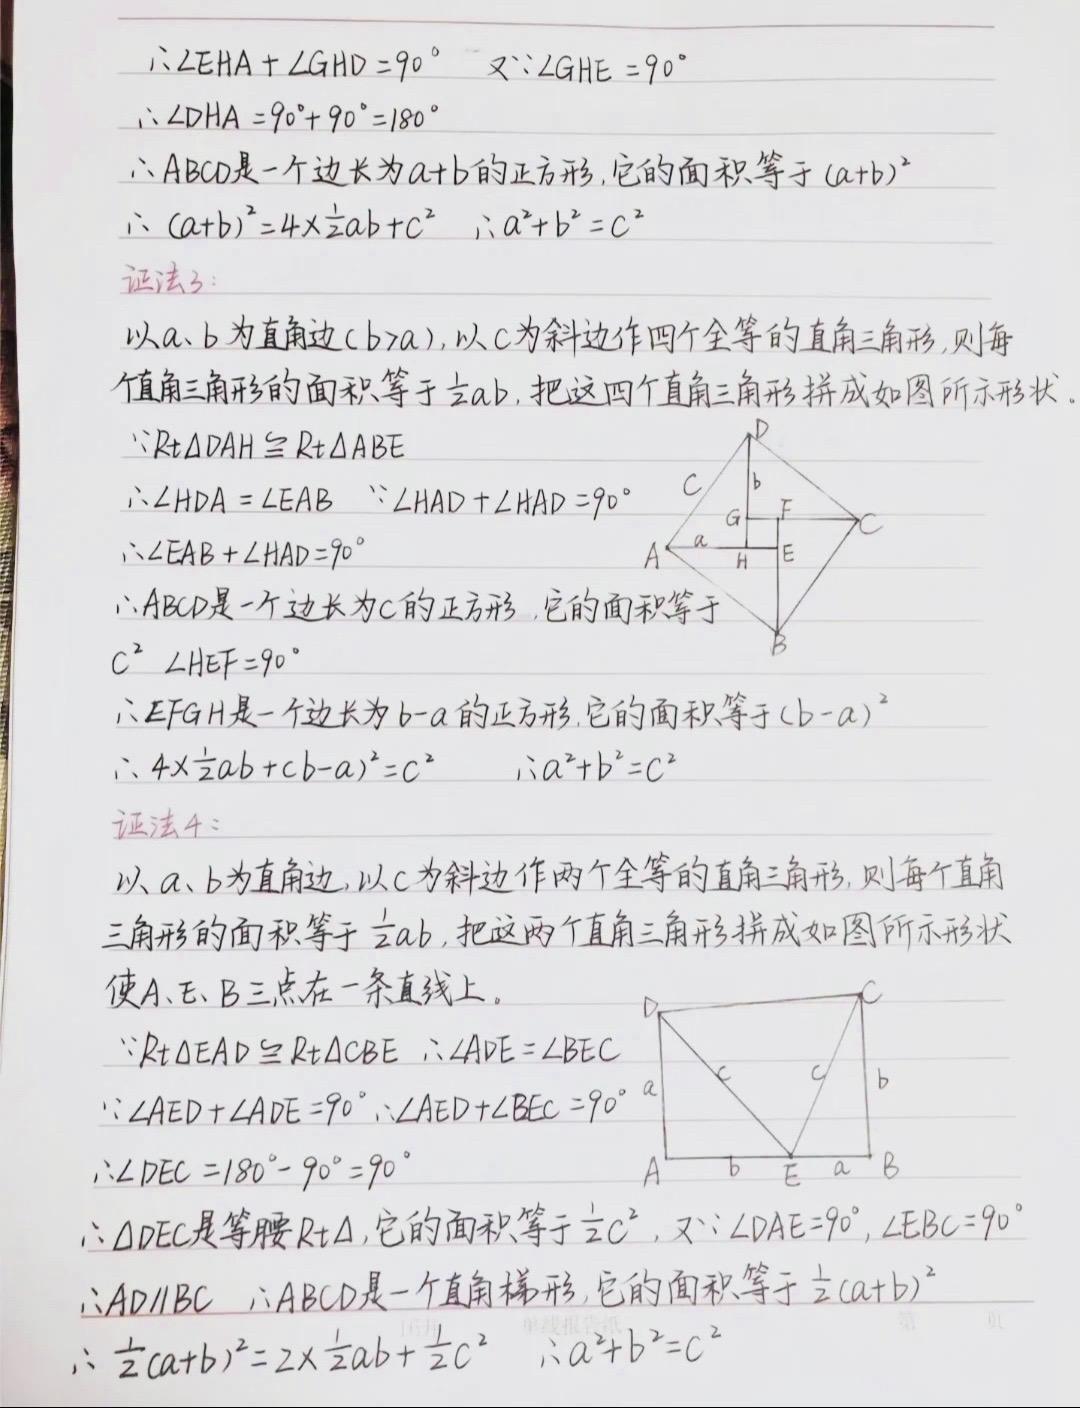 ∴∠EHA+∠GHD=90° 又∵∠GHE=90°
∴∠DHA=90°+90°=180°
∴ABCD是一个边长为a+b的正方形,它的面积等于(a+b)²
∴(a+b)²=4×½ab+c² ∴a²+b²=c²
证法3:
以a、b为直角边(b>a),以c为斜边作四个全等的直角三角形,则每
个直角三角形的面积等于½ab,把这四个直角三角形拼成如图所示形状。
∵Rt△DAH≌Rt△ABE
∴∠HDA=∠EAB ∵∠HAD+∠HAD=90°
∴∠EAB+∠HAD=90°
∴ABCD是一个边长为c的正方形,它的面积等于
c² ∠HEF=90°
D
C b
G F C
A a H E
B
∴EFGH是一个边长为b-a的正方形,它的面积等于(b-a)²
∴4×½ab+(b-a)²=c² ∴a²+b²=c²
证法4:
以a、b为直角边,以c为斜边作两个全等的直角三角形,则每个直角
三角形的面积等于½ab,把这两个直角三角形拼成如图所示形状
使A、E、B三点在一条直线上。
∵Rt△EAD≌Rt△CBE ∴∠ADE=∠BEC
∵∠AED+∠ADE=90°∴∠AED+∠BEC=90°
∴∠DEC=180°-90°=90°
D C
a c c b
A b E a B
∴△DEC是等腰Rt△,它的面积等于½c²,又∵∠DAE=90°,∠EBC=90°
∴AD//BC ∴ABCD是一个直角梯形,它的面积等于½(a+b)²
∴½(a+b)²=2×½ab+½c² ∴a²+b²=c²